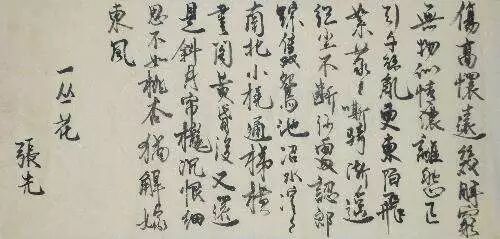 傷高懷遠幾時窮
無物似情濃離愁正
引千絲亂更東陌飛
絮濛々嘶騎漸遙
征塵不斷何處認郎
蹤雙鴛池沼水溶々
南北小橈通梯橫
畫閣黃昏後又還
是斜月帘櫳沉恨細
思不如桃杏猶解嫁
東風
一丛花
張先